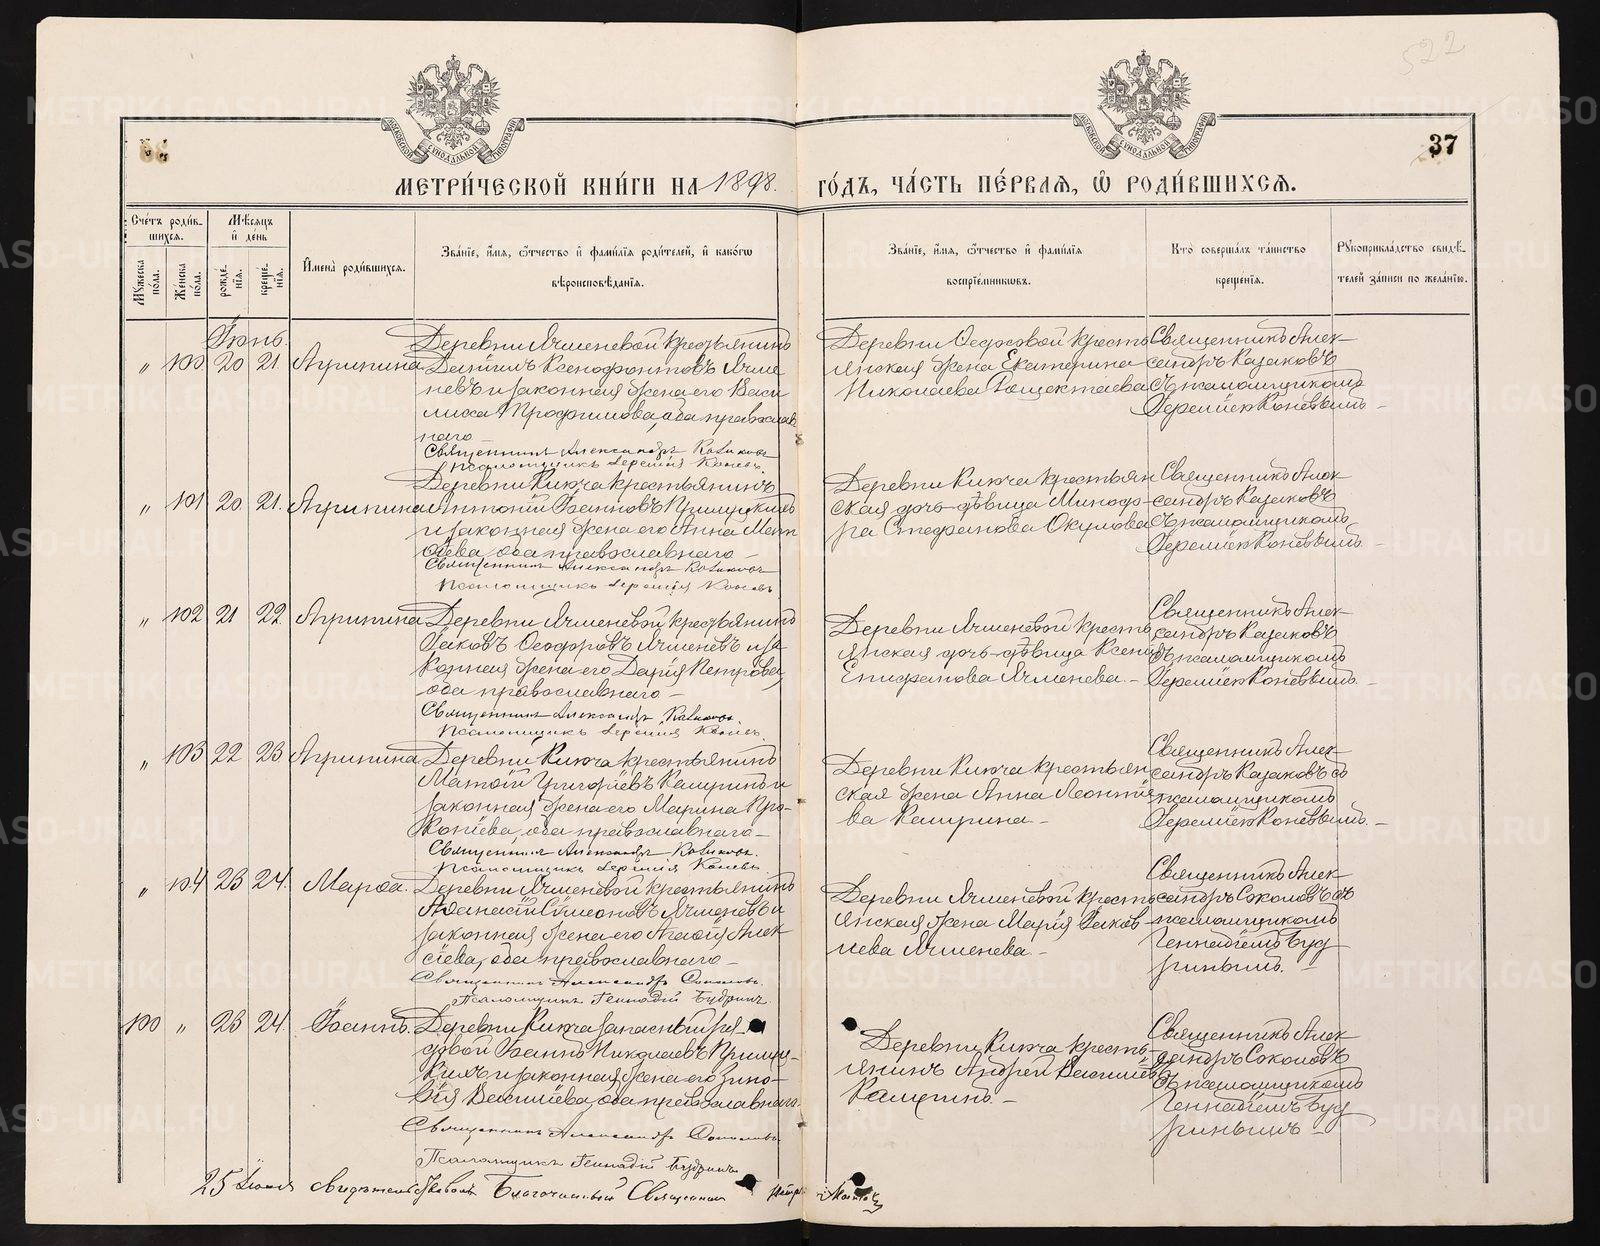 522
37
МЕТРИ́ЧЕСКОЙ КНИ́ГИ НА 1898.
ГО́ДЪ, ЧА́СТЬ ПЕ́РВАЯ, Ѡ҆ РОДИ́ВШИХСЯ.
Сче́тъ роди́в-
шихся.
Мѣ́сяцъ
и҆ де́нь
Мꙋ́жеска по́ла.
Же́нска по́ла.
рожде́-нїя.
креще́-нїя.
И҆мена̀ роди́вшихся.
Зва́нїе, и҆́мя, ѻ҆́тчество и҆ фами́лїя роди́телей, и҆ како́гѡ
вѣроисповѣ́данїя.
Зва́нїе, и҆́мя, ѻ҆́тчество и҆ фами́лїя
воспрїе́мникѡвъ.
Кто̀ соверша́лъ та́инство
креще́нїя.
Рꙋкоприкла́дство свидѣ́-
телей за́писи по жела́нїю.
Іюнь.
" 100 20 21. Агрипина
Деревни Ячменевой крестьянинъ
Даніилъ Ксенофонтовъ Ячме
невъ и законная жена его Васи
лиса Трофимова, оба православ
наго
Священникъ Александръ Казаковъ
Псаломщикъ Іеремія Коневъ.
Деревни Ячменевой кресть
янская жена Екатерина
Николаева
Священникъ Алек-
сандръ Казаковъ
съ псаломщикомъ
Іереміею Коневымъ
" 101 20 21. Агрипина
Деревни Ключа крестьянинъ
Антоній Іоанновъ
и законная жена его Анна
оба православнаго
Священникъ Александръ Казаковъ
Псаломщикъ Іеремія Коневъ
Деревни Ключа крестьян
ская дочь-дѣвица Минодо-
ра Стефанова Окулова
Священникъ Алек
сандръ Казаковъ
съ псаломщикомъ
Іереміею Коневымъ.
" 102 21 22 Агрипина
Деревни Ячменевой крестьянинъ
Іаковъ Ѳеодоровъ Ячменевъ и за
конная жена его Дарія Петрова,
оба православнаго
Священникъ Александръ Казаковъ.
Псаломщикъ Іеремія Коневъ.
Деревни Ячменевой кресть
янская дочь-дѣвица Ксенія
Епифанова Ячменева.
Священникъ Алек
сандръ Казаковъ
съ псаломщикомъ
Іереміею Коневымъ.
" 103 22 23 Агрипина
Деревни Ключа крестьянинъ
Матѳій Григоріевъ Кашринъ и
законная жена его Марина Про-
копіева, оба православнаго
Священникъ Александръ Казаковъ.
Псаломщикъ Іеремія Коневъ.
Деревни Ключа крестьян
ская жена Анна Леонтіе
ва
Священникъ Алек
сандръ Казаковъ съ
псаломщикомъ
Іереміею Коневымъ.
" 104 23 24. Марѳа.
Деревни Ячменевой крестьянинъ
Аѳанасій Сѵмеоновъ Ячменевъ и
законная жена его Агаѳія Алек
сіева, оба православнаго
Священникъ Александръ Соколовъ.
Псаломщикъ Геннадій Будринъ.
Деревни Ячменевой кресть
янская жена Марія Іаков
лева Ячменева.
Священникъ Алек
сандръ Соколовъ съ
псаломщикомъ
Геннадіемъ Буд
ринымъ.
100 " 23 24. Іоаннъ.
Деревни Ключа запасный ря
довой Іоаннъ Николаевъ
и законная жена его Зино-
вія Васильева, оба православнаго.
Священникъ Александръ Соколовъ.
Псаломщикъ Геннадій Будринъ.
Деревни Ключа кресть-
янинъ Андрей Васильевъ
Священникъ Алек
сандръ Соколовъ
съ псаломщикомъ
Геннадіемъ Буд
ринымъ
25 Іюня Свидѣтельствовалъ Благочинный Священникъ
METRIKI.GASO-URAL.RU